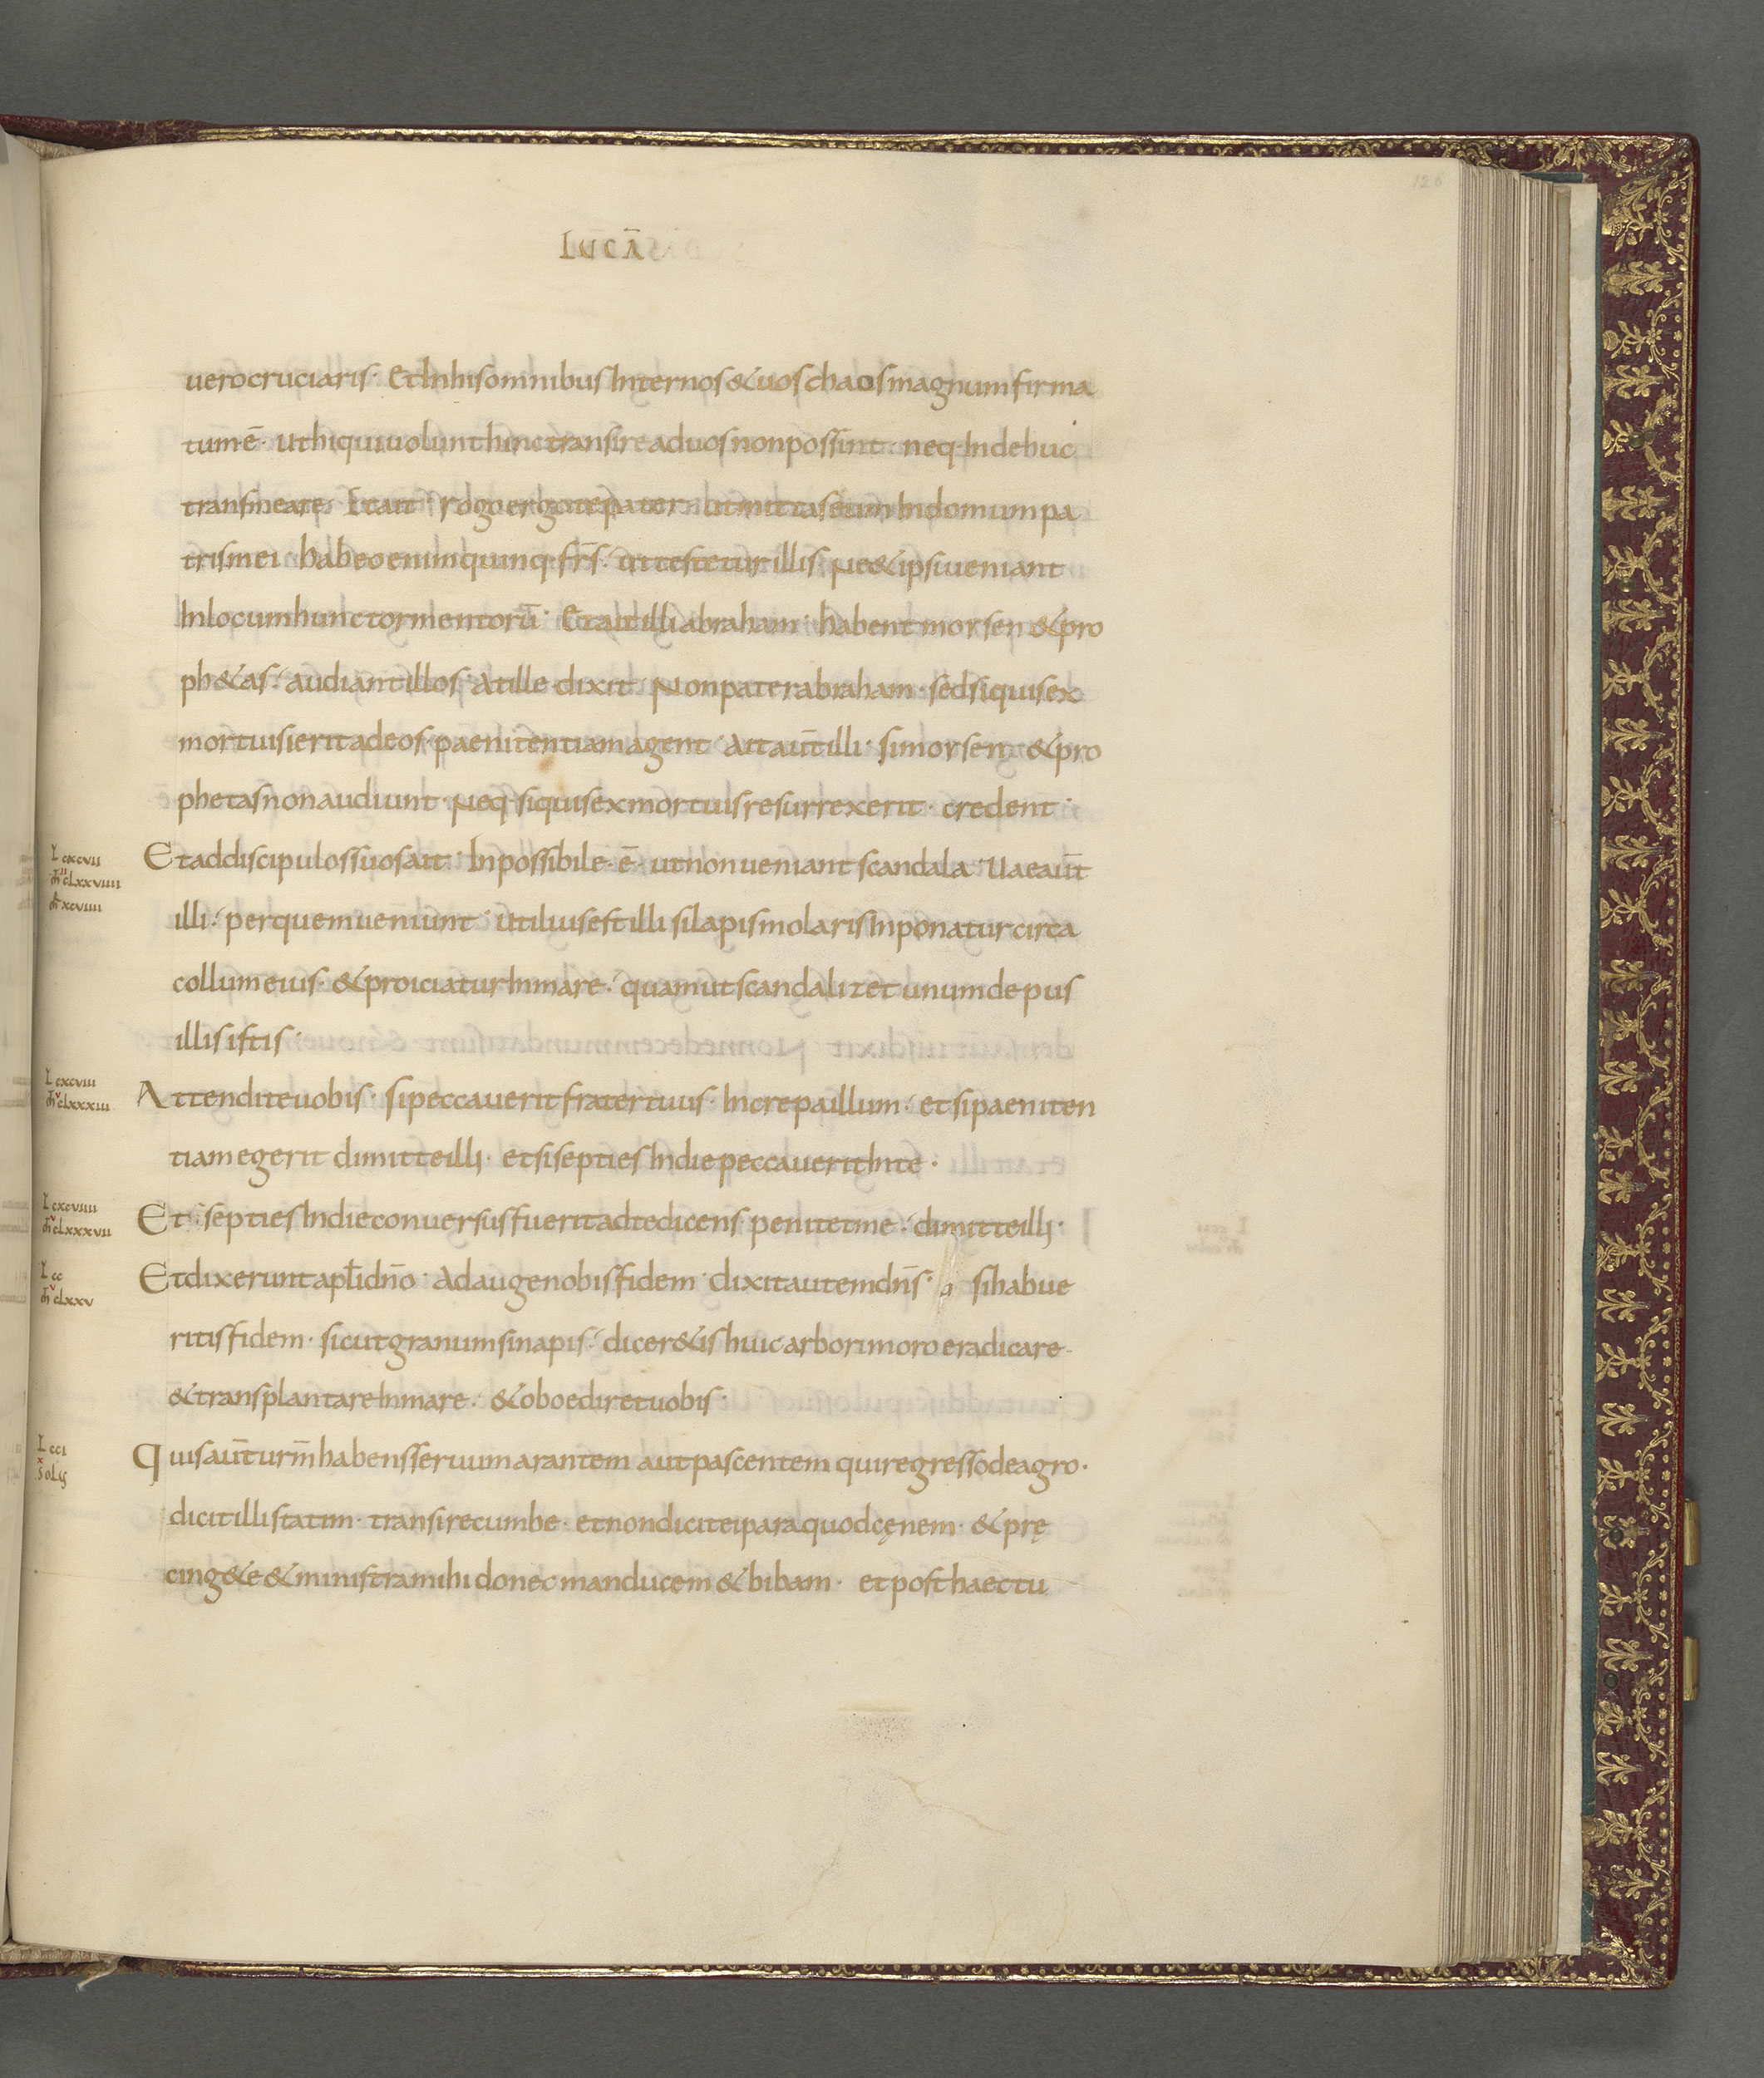 126
LUCĀ
uero cruciaris · Et In his omnibus Inter nos & uos chaos magnum firma
tum ē · ut hi qui uolunt hinc transire ad uos non possint · neq· Inde huc
transmeare · Et ait · rogo ergo te pater · ut mittas eum In domum pa
tris mei · habeo enim quinq· frs̄ · ut testetur illis · Ne & ipsi ueniant
In locum hunc tormentorū · Et ait illi abraham · habent morsen & pro
ph&as · audiant illos · At ille dixit · Non pater abraham · sed si quis ex
mortuis ierit ad eos · paenitentiam agent · Ait aūt illi · si morsen & pro
phetas non audiunt · Neq· si quis ex mortuis resurrexerit · credent ·
L cxcvii
Et ad discipulos suos ait · Inpossibile · ē · ut non ueniant scandala · Uae aūt
m̄ clxxviiii
mr̄ xcviiii
illi · per quem ueniunt · utilius est illi si lapis molaris Inponatur circa
collum eius · & proiciatur In mare · quam ut scandalizet unum de pus
illis istis ·
L cxcviii
m̄ clxxxiii
Attendite uobis · si peccauerit frater tuus · Increpa illum · et si paeniten
tiam egerit dimitte illi · et si septies In die peccauerit In te ·
L cxcviiii
m̄ clxxxvii
Et septies In die conuersus fuerit ad te dicens · penitet me · dimitte illi ·
L cc
m̄ clxxv
Et dixerunt apl̄i dn̄o · Adauge nobis fidem · dixit autem dn̄s · si habue
ritis fidem · sicut granum sinapis · dicer&is huic arbori moro eradicare ·
& transplantare In mare · & oboediret uobis ·
L cci
x
solus
Quis aūt urm̄ habens seruum arantem aut pascentem qui regresso de agro ·
dicit illi statim · transi recumbe · et non dicit ei para quod cęnem · & prę
cing&e & ministra mihi donec manducem & bibam · et post haec tu